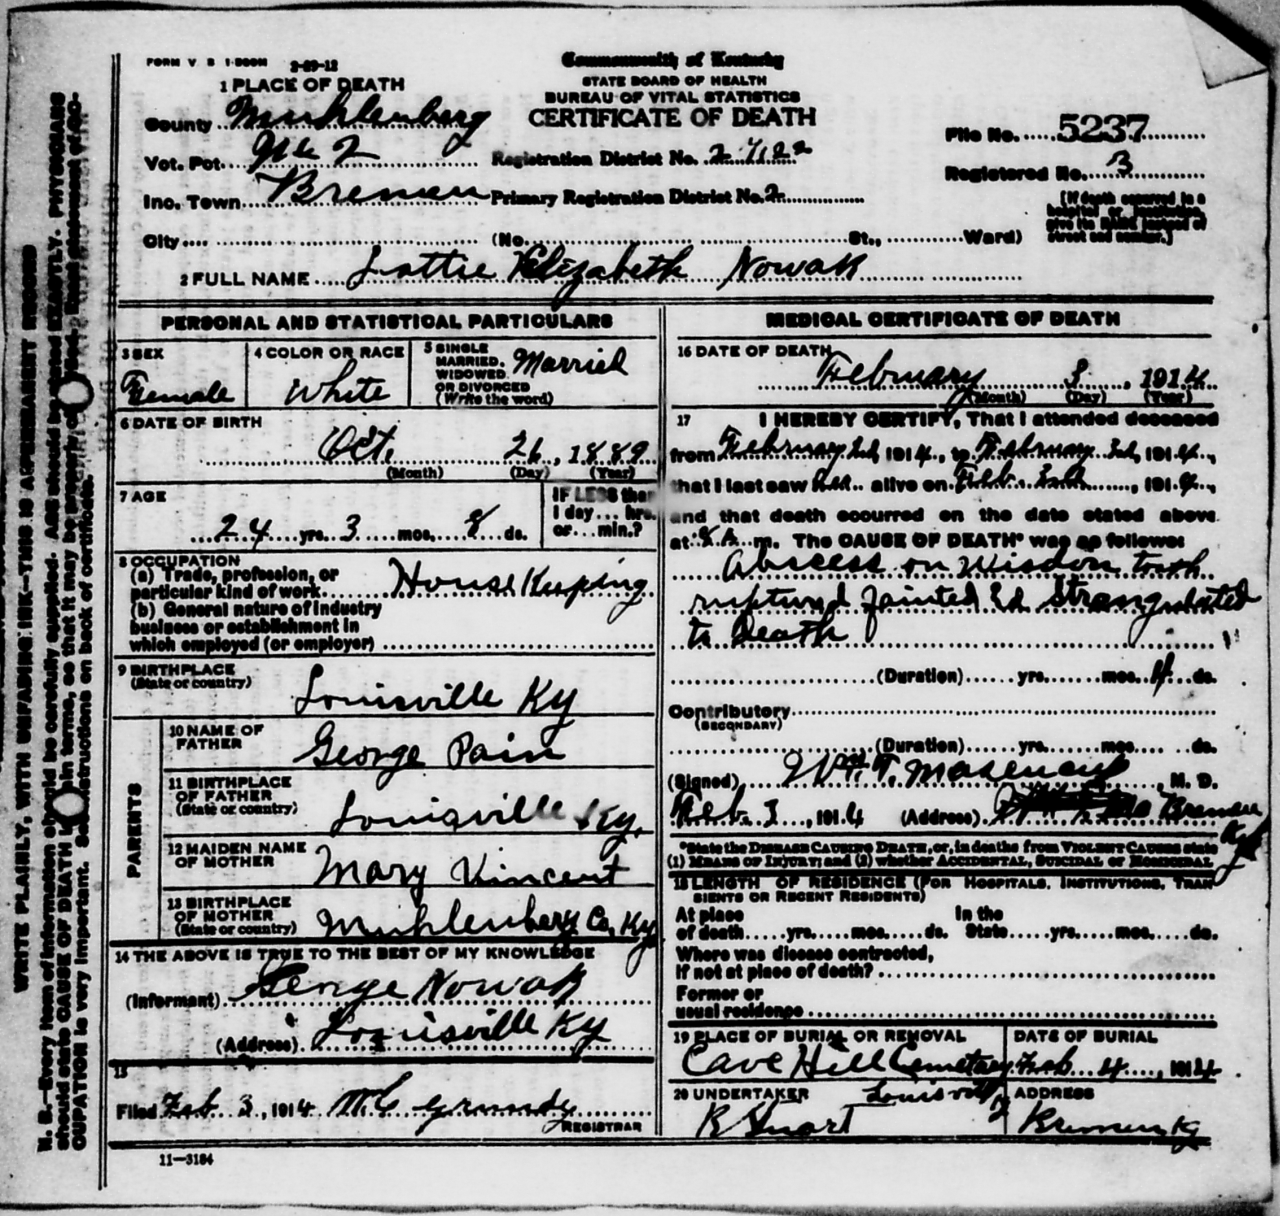 FORM V. S. 1-500M 2-29-12
Commonwealth of Kentucky
STATE BOARD OF HEALTH
BUREAU OF VITAL STATISTICS
CERTIFICATE OF DEATH
1 PLACE OF DEATH
County Muhlenberg
Vot. Pct. No 2
Registration District No.
Inc. Town Bremen
Primary Registration District No. 2
City (No. St., Ward)
File No. 5237
Registered No. 3
[If death occurred in a
hospital or institution,
give its NAME instead of
street and number.]
2 FULL NAME Lottie Elizabeth Nowak
PERSONAL AND STATISTICAL PARTICULARS
3 SEX
Female
4 COLOR OR RACE
White
5 SINGLE
MARRIED,
WIDOWED
OR DIVORCED
(Write the word)
Married
6 DATE OF BIRTH
Oct. 26, 1889
(Month) (Day) (Year)
7 AGE
24 yrs. 3 mos. 8 ds.
IF LESS than
1 day... hrs.
or... min.?
8 OCCUPATION
(a) Trade, profession, or
particular kind of work House Keeping
(b) General nature of industry
business or establishment in
which employed (or employer)
9 BIRTHPLACE
(State or country)
Louisville Ky
PARENTS
10 NAME OF
FATHER
George Pain
11 BIRTHPLACE
OF FATHER
(State or country)
Louisville Ky.
12 MAIDEN NAME
OF MOTHER
Mary Vincent
13 BIRTHPLACE
OF MOTHER
(State or country)
Muhlenberg Co, Ky
14 THE ABOVE IS TRUE TO THE BEST OF MY KNOWLEDGE
(Informant) George Nowak
(Address) Louisville Ky
15
Filed Feb 3, 1914 M C Grundy
REGISTRAR
11-3184
MEDICAL CERTIFICATE OF DEATH
16 DATE OF DEATH
February 3, 1914
(Month) (Day) (Year)
17 I HEREBY CERTIFY, That I attended deceased
from February 2d, 1914, to February 3d, 1914,
that I last saw her alive on Feb. 3rd, 1914,
and that death occurred on the date stated above
at 8 A. m. The CAUSE OF DEATH* was as follows:
Abscess on Wisdom tooth
ruptured fainted & Strangulated
to Death
(Duration) yrs. mos. 4 ds.
Contributory
(SECONDARY)
(Duration) yrs. mos. ds.
(Signed) Wm. T. , M. D.
Feb. 3, 1914 (Address) Bremen
Ky
*State the DISEASE CAUSING DEATH, or, in deaths from VIOLENT CAUSES state
(1) MEANS OF INJURY; and (2) whether ACCIDENTAL, SUICIDAL or HOMICIDAL
18 LENGTH OF RESIDENCE (FOR HOSPITALS, INSTITUTIONS, TRAN
SIENTS OR RECENT RESIDENTS)
At place In the
of death yrs. mos. ds. State yrs. mos. ds.
Where was disease contracted,
if not at place of death?
Former or
usual residence
19 PLACE OF BURIAL OR REMOVAL
Cave Hill Cemetery
Louisville
DATE OF BURIAL
Feb 4, 1914
20 UNDERTAKER
R Stuart
ADDRESS
Bremen Ky
WRITE PLAINLY, WITH UNFADING INK—THIS IS A PERMANENT RECORD
N. B.—Every item of information should be carefully supplied. AGE should be stated EXACTLY. PHYSICIANS
should state CAUSE OF DEATH in plain terms, so that it may be properly classified. Exact statement of OC-
CUPATION is very important. See instructions on back of certificate.